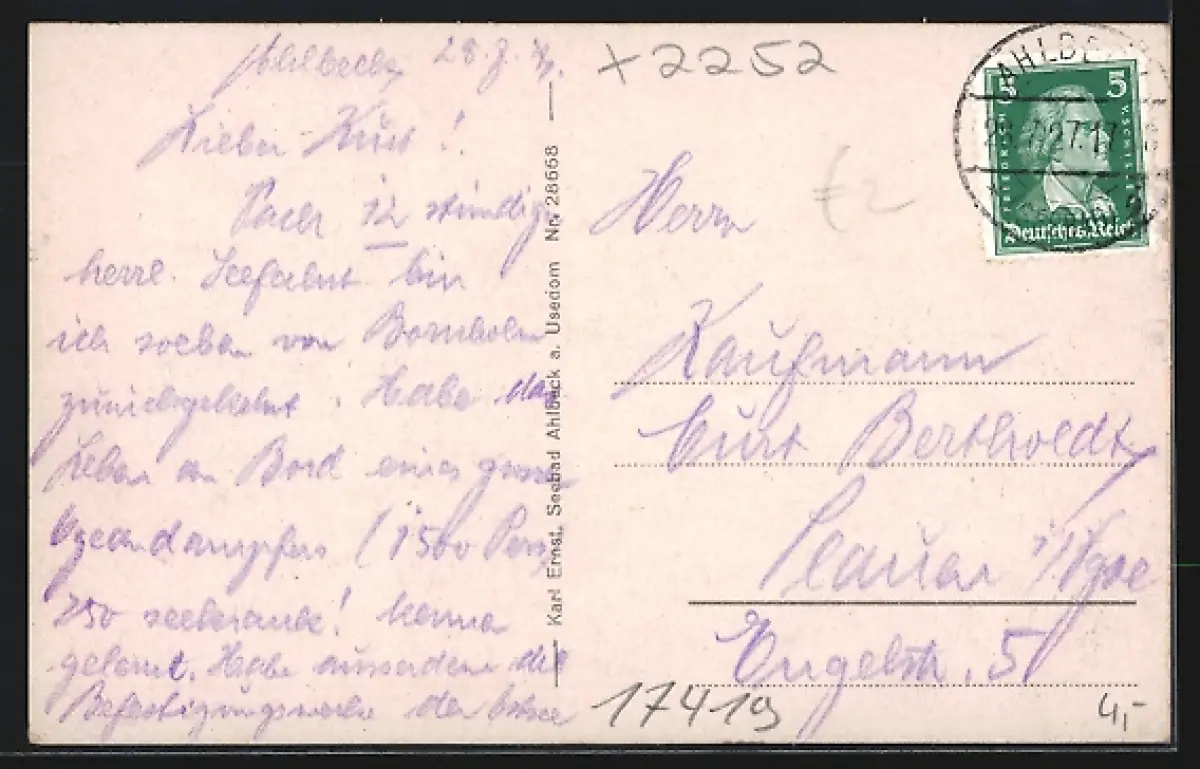 Ahlbeck 28.7.27.
Lieber Kurt!
Nach 12 stündiger
herrl. Seefahrt bin
ich soeben von Bornholm
zurückgekehrt. Habe das
Leben an Bord eines grossen
Ozeandampfers (1500 Pers.
750 seekrank! kennen
gelernt. Habe ausserdem die
Befestigungswerke der Ostsee
Karl Ernst, Seebad Ahlbeck a. Usedom Nr. 28668
+2252
AHLBECK
27.17
5 5
FRIEDRICH V. SCHILLER
Deutsches Reich
£2
Herrn
Kaufmann
Curt Bertholdt
Plauen i/Vgtl
Engelstr. 5
17419
4,-